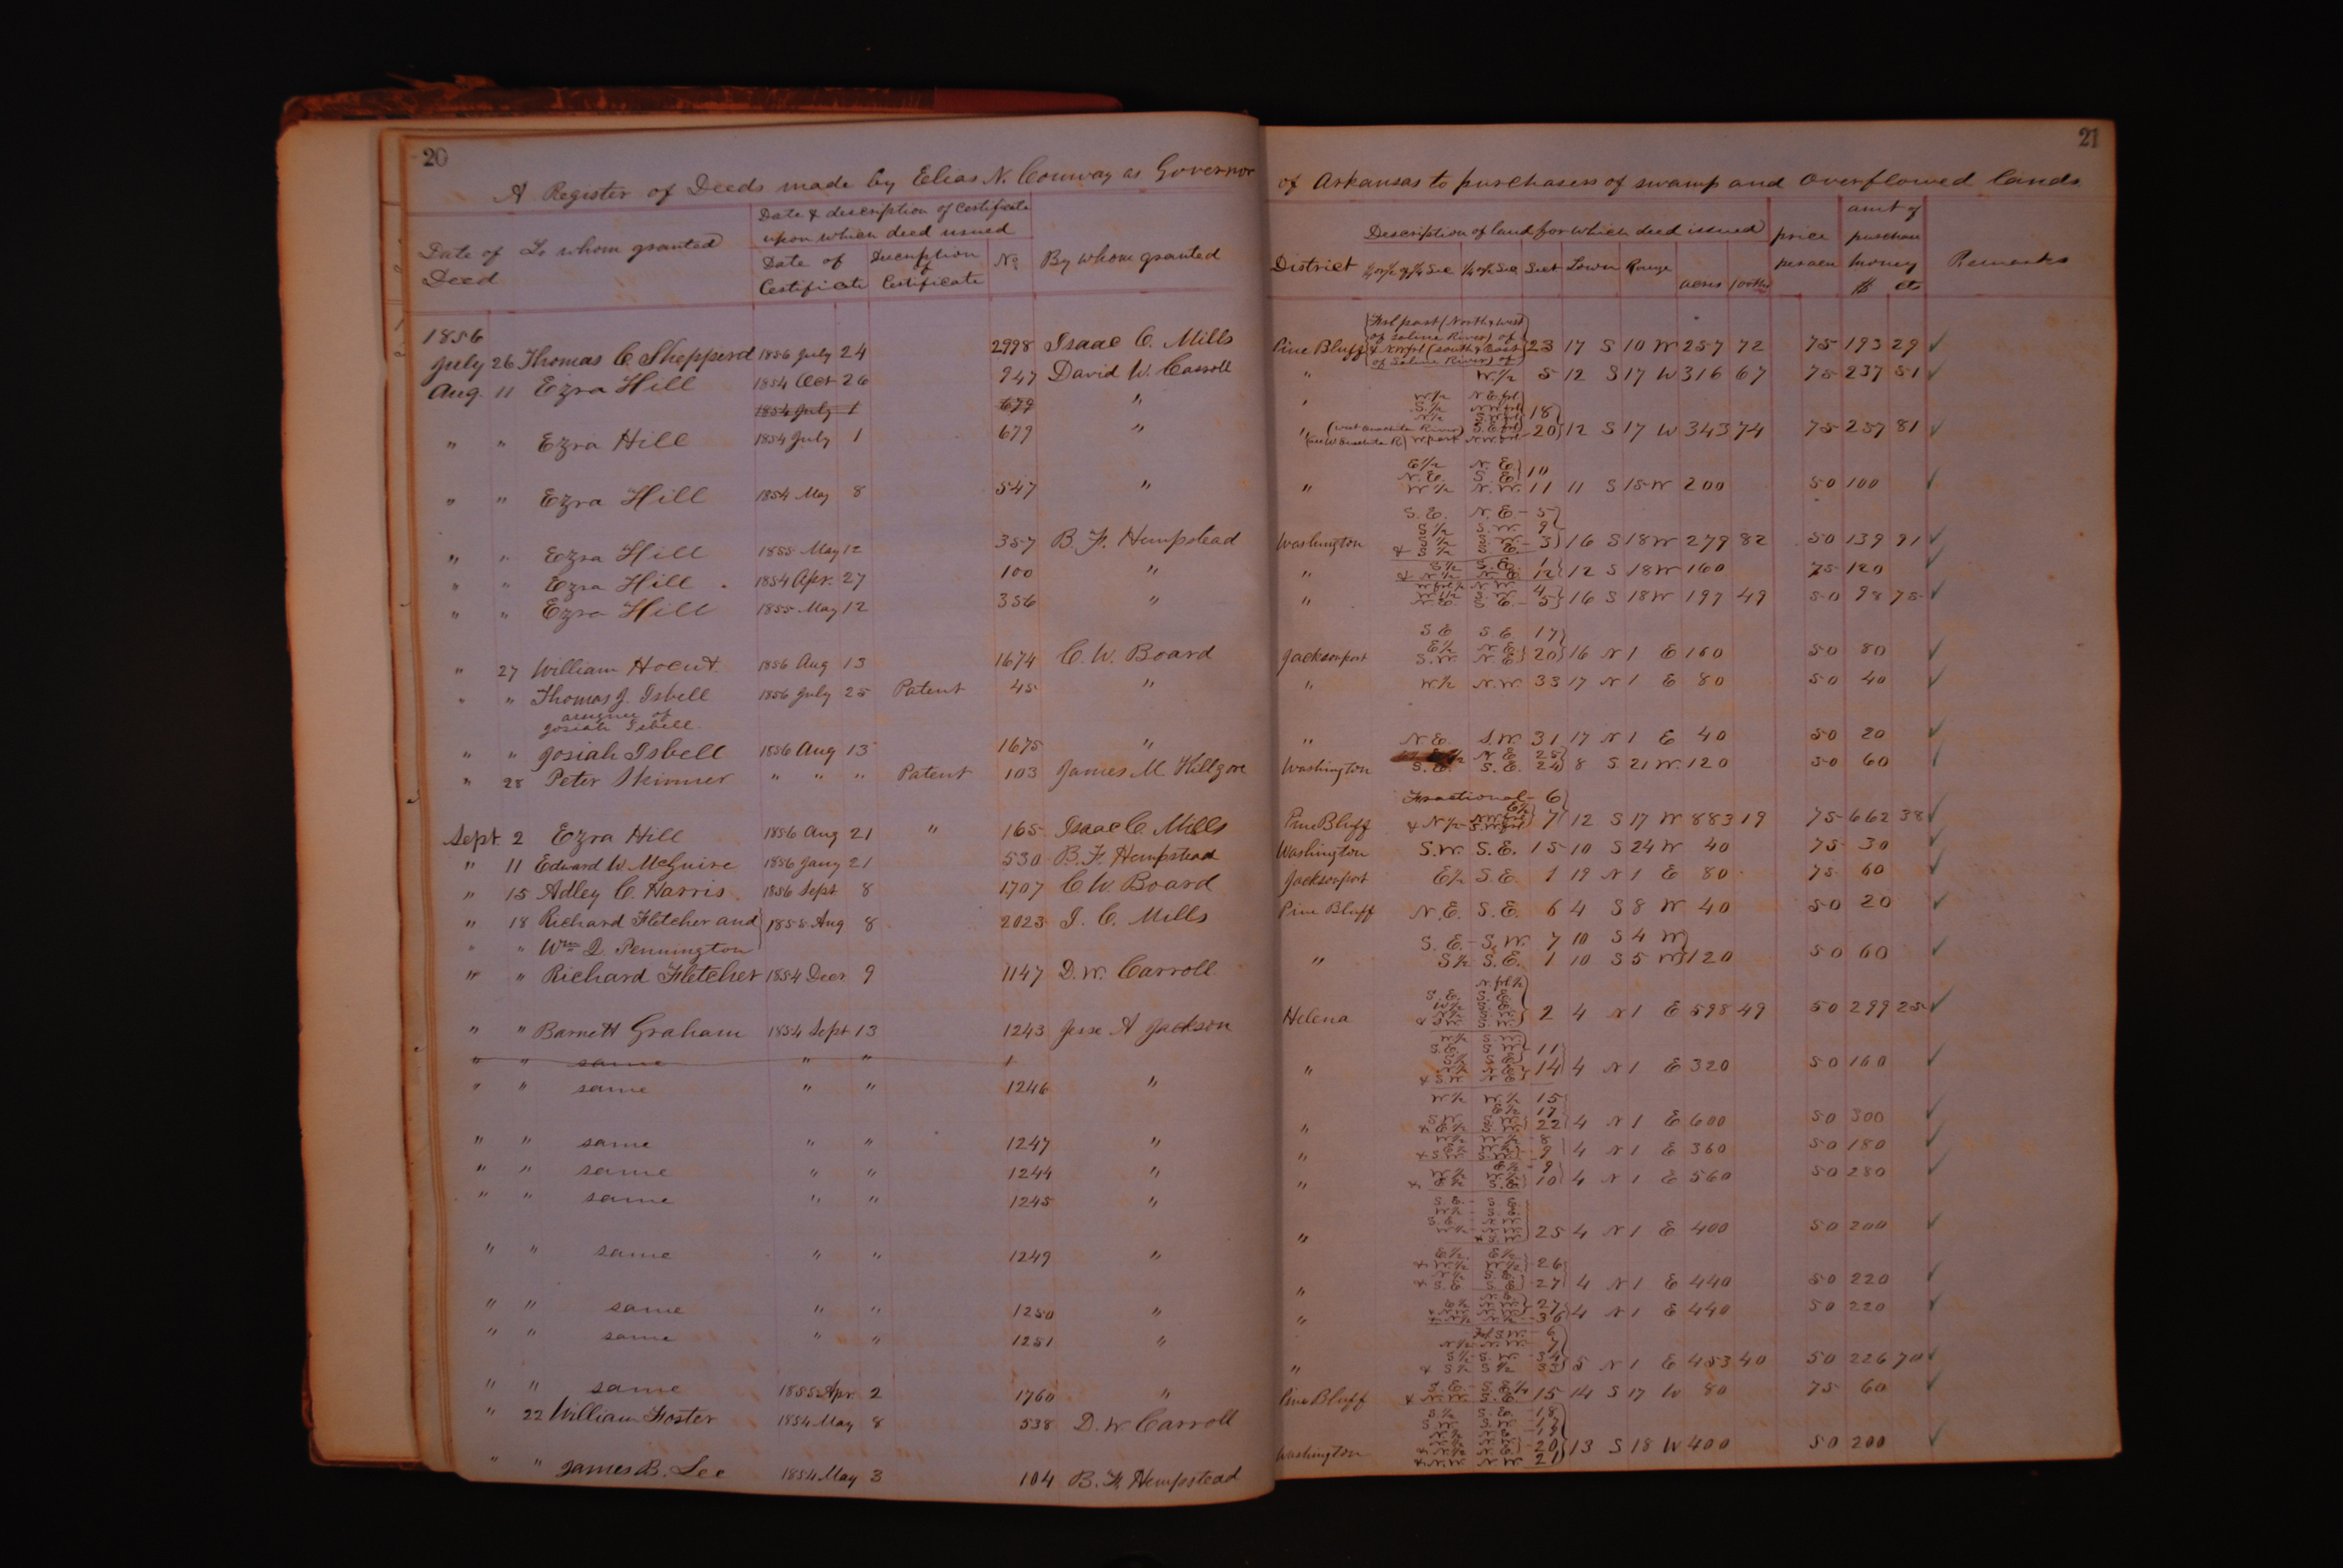 20
A Register of Deeds made by Elias N. Conway as Governor
Date of Deed
To whom granted
Date & description of Certificate
upon which deed issued
Date of Certificate
Description of Certificate
No.
By whom granted
1856
July 26 Thomas C. Shepperd 1856 July 24 2998 Isaac C. Mills
Aug. 11 Ezra Hill 1854 Oct 26 947 David W. Carroll
1854 July 1 679 "
" " Ezra Hill 1854 July 1 679 "
" " Ezra Hill 1854 May 8 547 "
" " Ezra Hill 1855 May 12 357 B. F. Hempstead
" " Ezra Hill 1854 Apr. 27 100 "
" " Ezra Hill 1855 May 12 356 "
" 27 William Hocut 1856 Aug 13 1674 C. W. Board
" " Thomas J. Isbell 1856 July 25 Patent 45 "
assignee of
Josiah Isbell
" " Josiah Isbell 1856 Aug 13 1675 "
" 28 Peter Skinner " " " Patent 103 James M Killgore
Sept. 2 Ezra Hill 1856 Aug 21 " 165 Isaac C. Mills
" 11 Edward W. McGuire 1856 Jany 21 530 B. F. Hempstead
" 15 Adley C. Harris 1856 Sept 8 1707 C. W. Board
" 18 Richard Fletcher and 1855 Aug 8 2023 I. C. Mills
" " Wm Q. Pennington
" " Richard Fletcher 1854 Decr 9 1147 D. W. Carroll
" " Barnett Graham 1854 Sept 13 1243 Jesse A Jackson
" " same " "
" " same " " 1246 "
" " same " " 1247 "
" " same " " 1244 "
" " same " " 1245 "
" " same " " 1249 "
" " same " " 1250 "
" " same " " 1251 "
" " same 1855 Apr. 2 1760 "
" 22 William Foster 1854 May 8 538 D. W. Carroll
" " James B. Lee 1854 May 3 104 B. F. Hempstead
21
of Arkansas to purchasers of swamp and overflowed lands
Description of land for which deed issued
price per acre
amt of purchase money
$ cts
Remarks
District
Sect Town Range acres 100ths
Frl part (North & West
of Saline River) of
Pine Bluff & NW frl (south & East 23 17 S 10 W 257 72 75 193 29 ✓
of Saline River) of
" W. 1/2 5 12 S 17 W 316 67 75 237 51 ✓
" W 1/2 N.E. frl
S. 1/2 N W frl 18
N 1/2 S.W. frl
" (West Ouachita River) S. E frl 20 12 S 17 W 343 74 75 257 81 ✓
E 1/2 N. E. 10
N. E. S. E.
" W 1/2 N. W. 11 11 S 15 W 200 50 100 ✓
S. E. N. E. - 5
S 1/2 S. W. 9
Washington S 1/2 S. W. - 3 16 S 18 W 279 82 50 139 91 ✓
& S 1/2 S. E.
S 1/2 S. E. 1
" & N 1/2 N. E. 12 12 S 18 W 160 75 120 ✓
" W 1/2 S. W. 4 16 S 18 W 197 49 50 98 75 ✓
N. E. S. E. - 5
S E S. E. 17
E 1/2 N. E.
Jacksonport S. W. N. E. 20 16 N 1 E 160 50 80 ✓
" W 1/2 N. W. 33 17 N 1 E 80 50 40 ✓
" N. E. S. W. 31 17 N 1 E 40 50 20 ✓
N. E. 25
Washington S. E. S. E. 24 8 S 21 W. 120 50 60 ✓
Fractional - 6
Pine Bluff & N 1/2 S. W frl 7 12 S 17 W 883 19 75 662 38 ✓
Washington S. W. S. E. 15 10 S 24 W 40 75 30 ✓
Jacksonport E 1/2 S. E. 1 19 N 1 E 80 75 60 ✓
Pine Bluff N. E. S. E. 6 4 S 8 W 40 50 20 ✓
S. E. - S. W. 7 10 S 4 W
" S 1/2 S. E. 1 10 S 5 W 120 50 60 ✓
N. frl 1/2
Helena 2 4 N 1 E 598 49 50 299 25 ✓
11
" & S. W N E 14 4 N 1 E 320 50 160 ✓
W 1/2 W. 1/2 15
E 1/2 17
" 22 4 N 1 E 600 50 300 ✓
8
" 9 4 N 1 E 360 50 180 ✓
E 1/2 9
" 10 4 N 1 E 560 50 280 ✓
" 25 4 N 1 E 400 50 200 ✓
E 1/2 E 1/2 26
" 27 4 N 1 E 440 50 220 ✓
" 27 4 N 1 E 440 50 220 ✓
36
Frl S. W. - 6
7
S 1/2 - S. W. - 34
" & S 1/2 S 1/2 33 5 N 1 E 453 40 50 226 70 ✓
Pine Bluff 15 14 S 17 W 80 75 60 ✓
S 1/2 S. E. - 18
17
Washington 20 13 S 18 W 400 50 200 ✓
& N. W. N. W. 21